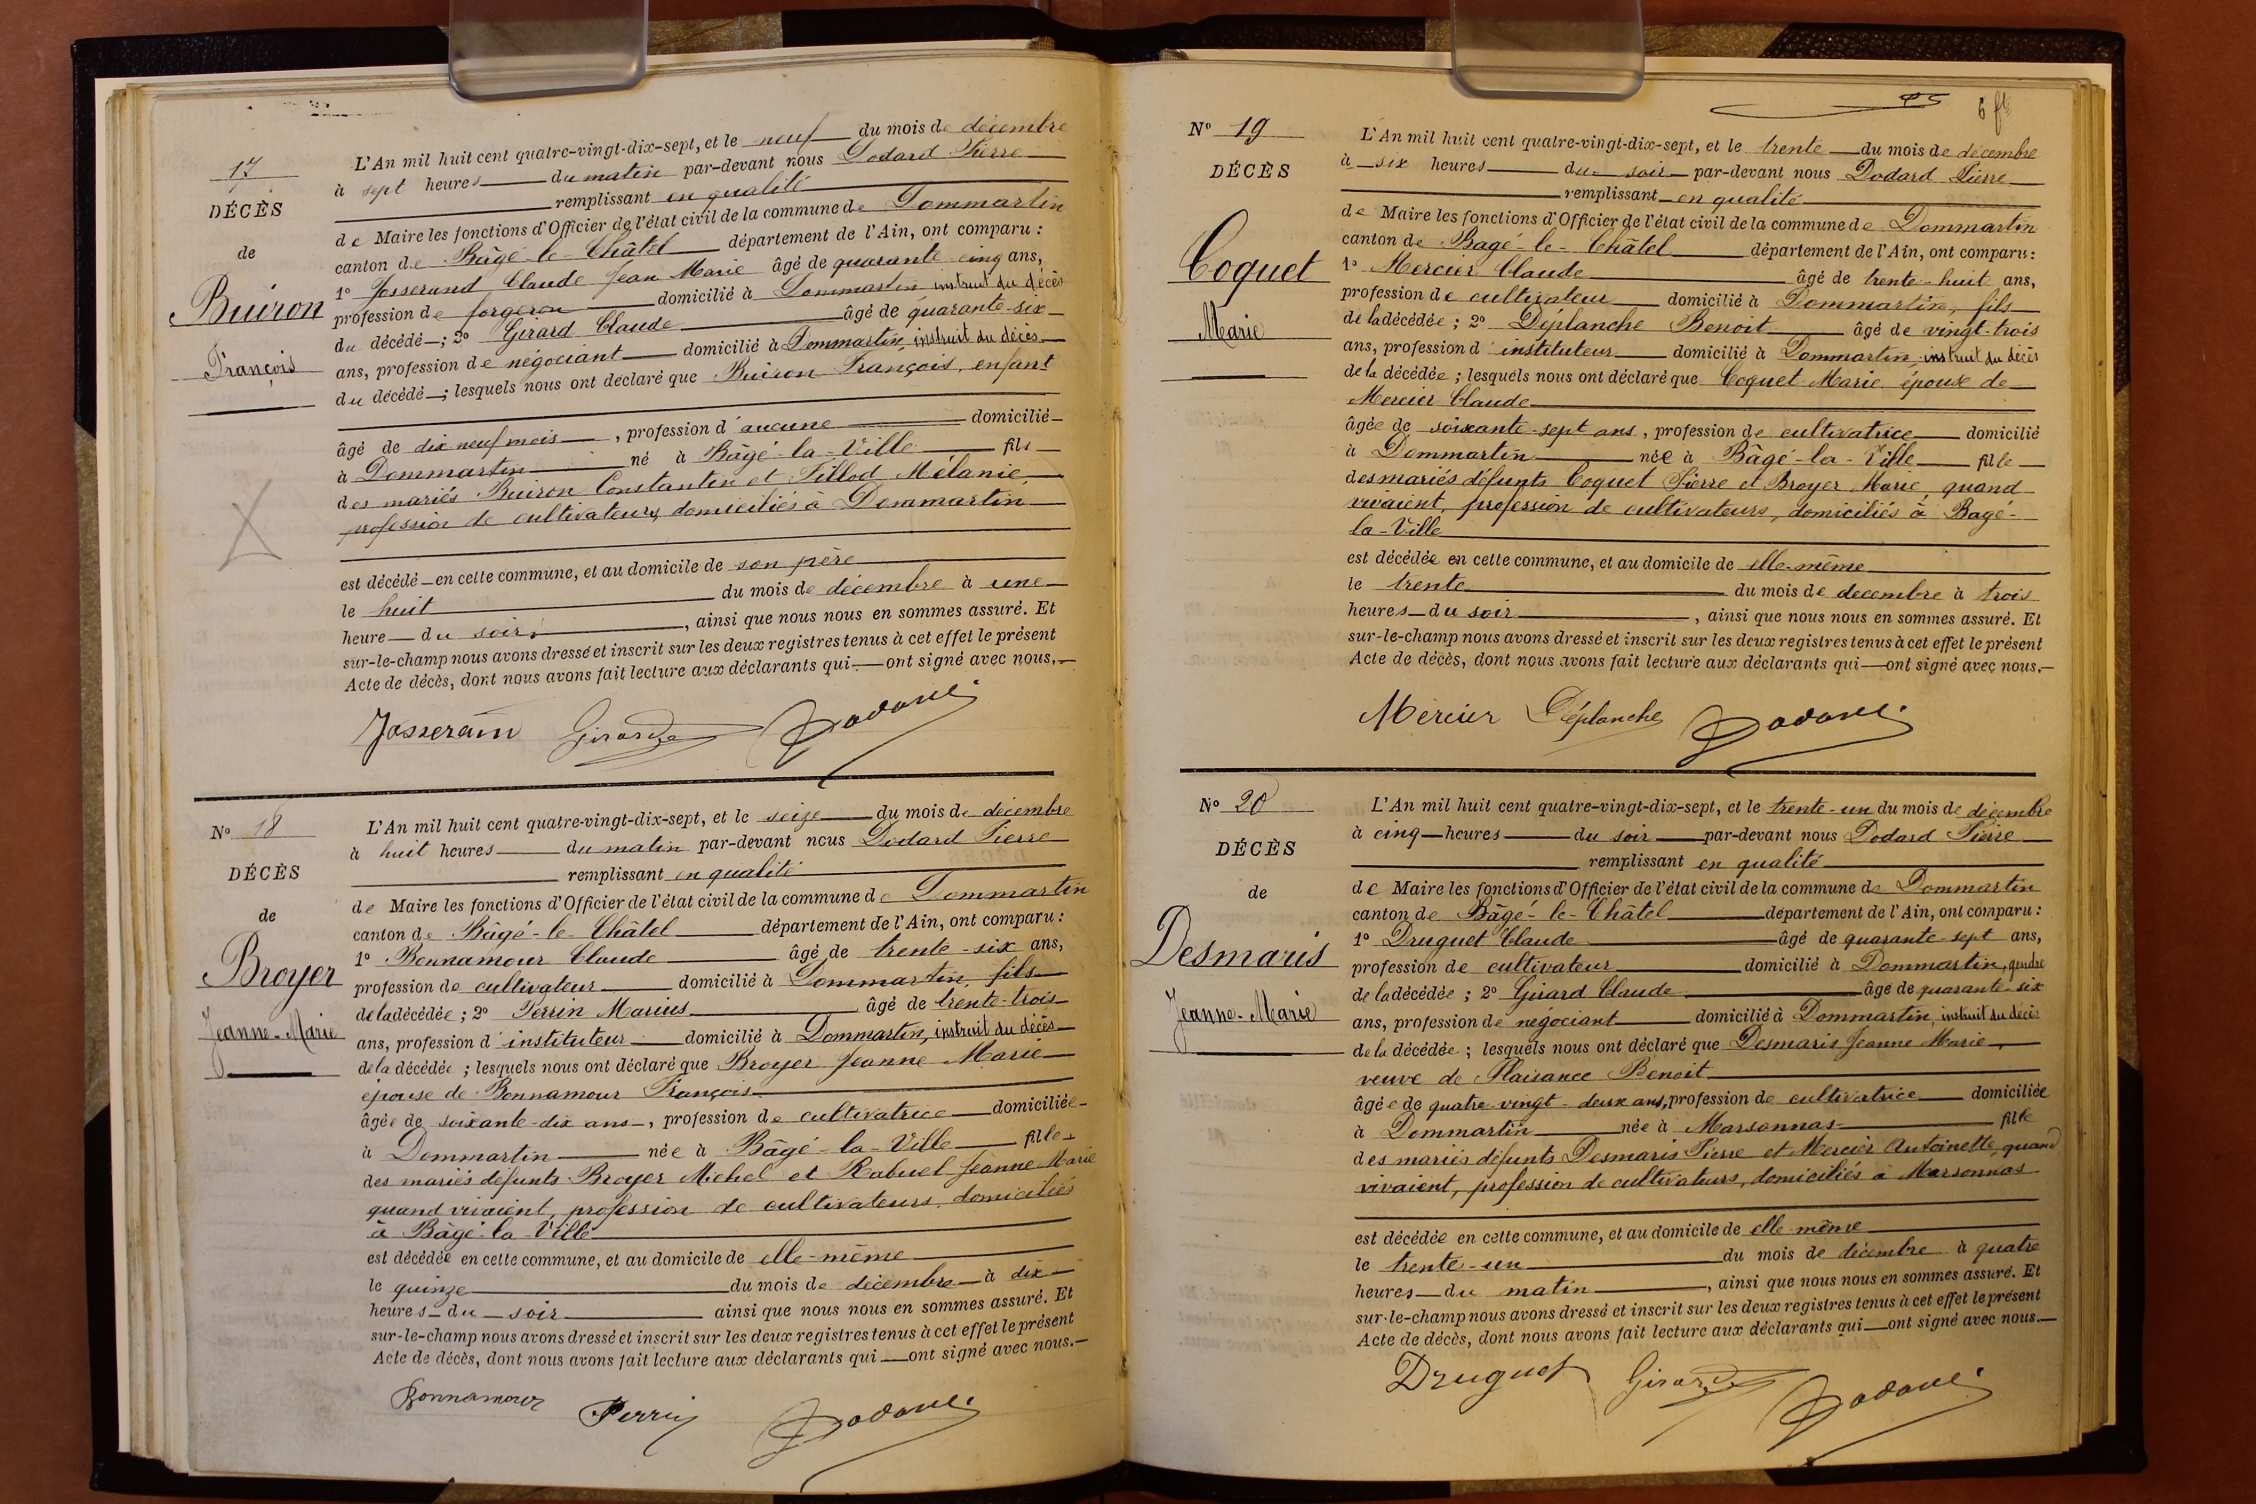 17
DÉCÈS
de
Buiron
François
L'An mil huit cent quatre-vingt-dix-sept, et le neuf du mois de décembre
à sept heures du matin par-devant nous Dodard Pierre
remplissant en qualité
de Maire les fonctions d'Officier de l'état civil de la commune de Dommartin
canton de Bâgé-le-Châtel département de l'Ain, ont comparu :
1° Josserand Claude Jean Marie âgé de quarante-cinq ans,
profession de forgeron domicilié à Dommartin instruit du décès
du décédé ; 2° Girard Claude âgé de quarante-six
ans, profession de négociant domicilié à Dommartin, instruit du décès
du décédé ; lesquels nous ont déclaré que Buiron François, enfant
âgé de dix neuf mois, profession d'aucune domicilié
à Dommartin né à Bâgé-la-Ville fils
des mariés Buiron Constantin et Tillod Mélanie,
profession de cultivateurs, domiciliés à Dommartin
est décédé en cette commune, et au domicile de son père
le huit du mois de décembre à une
heure du soir, ainsi que nous nous en sommes assuré. Et
sur-le-champ nous avons dressé et inscrit sur les deux registres tenus à cet effet le présent
Acte de décès, dont nous avons fait lecture aux déclarants qui ont signé avec nous.
Josseram Girard Dodard
N° 18
DÉCÈS
de
Broyer
Jeanne-Marie
L'An mil huit cent quatre-vingt-dix-sept, et le seize du mois de décembre
à huit heures du matin par-devant nous Dodard Pierre
remplissant en qualité
de Maire les fonctions d'Officier de l'état civil de la commune de Dommartin
canton de Bâgé-le-Châtel département de l'Ain, ont comparu :
1° Bonnamour Claude âgé de trente-six ans,
profession de cultivateur domicilié à Dommartin, fils
de la décédée ; 2° Perrin Marius âgé de trente-trois
ans, profession d'instituteur domicilié à Dommartin, instruit du décès
de la décédée ; lesquels nous ont déclaré que Broyer Jeanne Marie
épouse de Bonnamour François
âgée de soixante-dix ans, profession de cultivatrice domiciliée
à Dommartin née à Bâgé-la-Ville fille
des mariés défunts Broyer Michel et Rabuel Jeanne Marie
quand vivaient, profession de cultivateurs, domiciliés
à Bâgé-la-Ville
est décédée en cette commune, et au domicile de elle-même
le quinze du mois de décembre à dix
heures du soir ainsi que nous nous en sommes assuré. Et
sur-le-champ nous avons dressé et inscrit sur les deux registres tenus à cet effet le présent
Acte de décès, dont nous avons fait lecture aux déclarants qui ont signé avec nous.
Bonnamour Perrin Dodard
N° 19
DÉCÈS
Coquet
Marie
L'An mil huit cent quatre-vingt-dix-sept, et le trente du mois de décembre
à six heures du soir par-devant nous Dodard Pierre
remplissant en qualité
de Maire les fonctions d'Officier de l'état civil de la commune de Dommartin
canton de Bagé-le-Châtel département de l'Ain, ont comparu :
1° Mercier Claude âgé de trente-huit ans,
profession de cultivateur domicilié à Dommartin, fils
de la décédée ; 2° Déplanche Benoit âgé de vingt-trois
ans, profession d'instituteur domicilié à Dommartin instruit du décès
de la décédée ; lesquels nous ont déclaré que Coquet Marie épouse de
Mercier Claude
âgée de soixante-sept ans, profession de cultivatrice domicilié
à Dommartin née à Bâgé-la-Ville fille
des mariés défunts Coquet Pierre et Broyer Marie, quand
vivaient, profession de cultivateurs, domiciliés à Bagé-
la-Ville
est décédée en cette commune, et au domicile de elle-même
le trente du mois de decembre à trois
heures du soir, ainsi que nous nous en sommes assuré. Et
sur-le-champ nous avons dressé et inscrit sur les deux registres tenus à cet effet le présent
Acte de décès, dont nous avons fait lecture aux déclarants qui ont signé avec nous.
Mercier Déplanche Dodard
N° 20
DÉCÈS
de
Desmaris
Jeanne-Marie
L'An mil huit cent quatre-vingt-dix-sept, et le trente-un du mois de décembre
à cinq heures du soir par-devant nous Dodard Pierre
remplissant en qualité
de Maire les fonctions d'Officier de l'état civil de la commune de Dommartin
canton de Bâgé-le-Châtel département de l'Ain, ont comparu :
1° Druguet Claude âgé de quarante-sept ans,
profession de cultivateur domicilié à Dommartin, gendre
de la décédée ; 2° Girard Claude âgé de quarante-six
ans, profession de négociant domicilié à Dommartin, instruit du décès
de la décédée ; lesquels nous ont déclaré que Desmaris Jeanne Marie,
veuve de Plaisance Benoit
âgée de quatre-vingt-deux ans, profession de cultivatrice domiciliée
à Dommartin née à Marsonnas fille
des mariés défunts Desmaris Pierre et Mercier Antoinette, quand
vivaient, profession de cultivateurs, domiciliés à Marsonnas
est décédée en cette commune, et au domicile de elle-même
le trente-un du mois de décembre à quatre
heures du matin, ainsi que nous nous en sommes assuré. Et
sur-le-champ nous avons dressé et inscrit sur les deux registres tenus à cet effet le présent
Acte de décès, dont nous avons fait lecture aux déclarants qui ont signé avec nous.
Druguet Girard Dodard